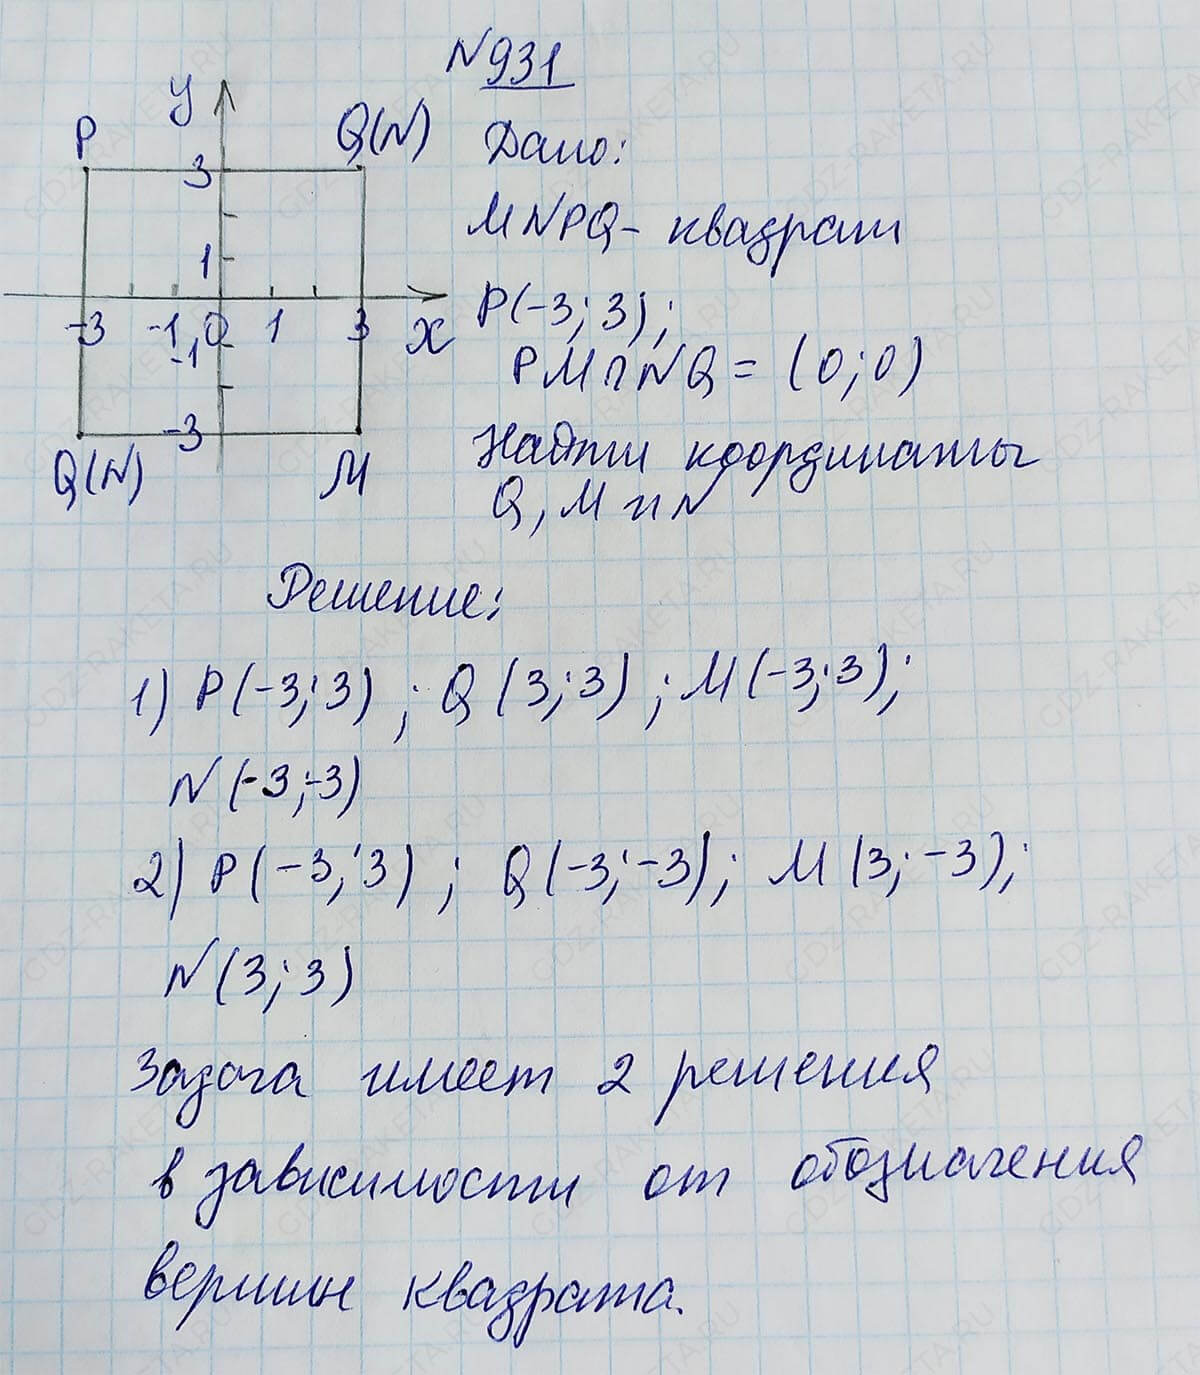 N931
y
P
Q(N)
3
1
-3
-1
0
1
3
x
-1
-3
Q(N)
M
Дано:
MNPQ- квадрат
P(-3; 3);
PM∩NQ = (0;0)
Найти координаты
Q, M и N
Решение:
1) P(-3; 3) ; Q (3; 3) ; M(-3; 3);
N (-3;-3)
2) P(-3; 3) ; Q (-3; -3); M (3; -3);
N (3; 3)
Задача имеет 2 решения
в зависимости от обозначения
вершин квадрата.
GDZ-RAKETA.RU